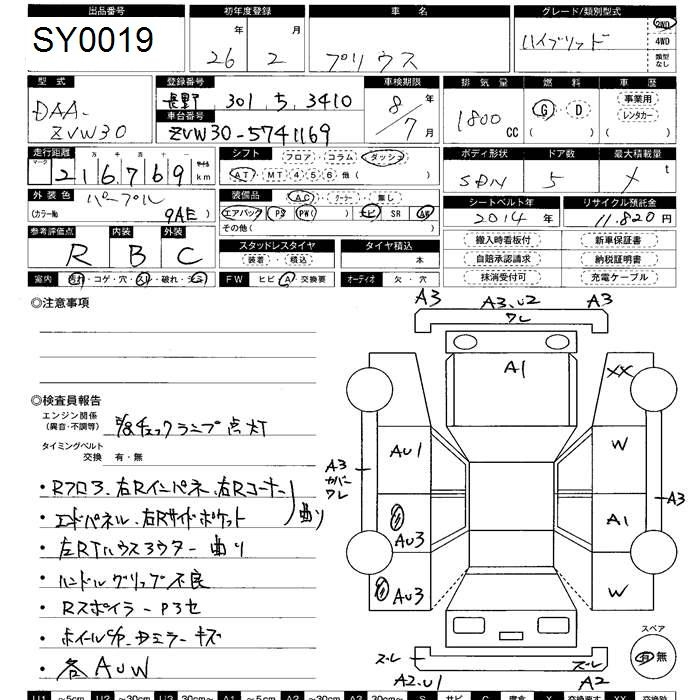 出品番号 初年度登録 車名 グレード/類別型式
SY0019 26年 2月 プリウス ハイブリッド 2WD 4WD 類型なし
型式 登録番号 車検期限 排気量 燃料 車歴
DAA-ZVW30 長野 301 ち 3410 8年 7月 1800cc G D ( ) 事業用 レンタカー ( )
車台番号
ZVW30-5741169
走行距離 シフト フロア・コラム・ダッシュ ボディ形状 ドア数 最大積載量
マーク 十万 万 千 百 十 マイル
216769 km AT・MT 4 5 6 他( ) SDN 5 t
外装色 パープル 装備品 AC・クーラー・無し シートベルト年 リサイクル預託金
(カラーNo. 9AE) エアバック PS PW( ) ナビ SR AW 2014年 11,820円
その他( )
参考評価点 内装 外装 スタッドレスタイヤ タイヤ積込 搬入時看板付 新車保証書
R B C 装着・積込 本 自賠承認請求 納税証明書
室内 汚れ・コゲ・穴・スリ・破れ・シミ FW ヒビ・A・交換要 オーディオ 欠・穴 抹消受付可 充電ケーブル
◎注意事項
◎検査員報告
エンジン関係
(異音・不調等) チェックランプ点灯
タイミングベルト
交換 有・無
・Rフロア、右Rインパネ、右Rコーナー
・エンドパネル、右Rサイドポケット 曲り
・左Rタイヤハウスアウター 曲り
・ハンドルグリップ不良
・Rスポイラー P3セ
・ホイールC/P、ミラーキズ
・各AUW
A3 A3,U2 A3
ワレ
A1
XX
AU1
W
A3
カバー
ワレ
A3
AU3
A1
AU3
W
ズレ
A2,U1
ズレ
A2
スペア
有 無
U1 ~5cm U2 ~30cm U3 30cm~ A1 ~5cm A2 ~30cm A3 30cm~ S サビ C 腐食 X 交換要す XX 交換跡